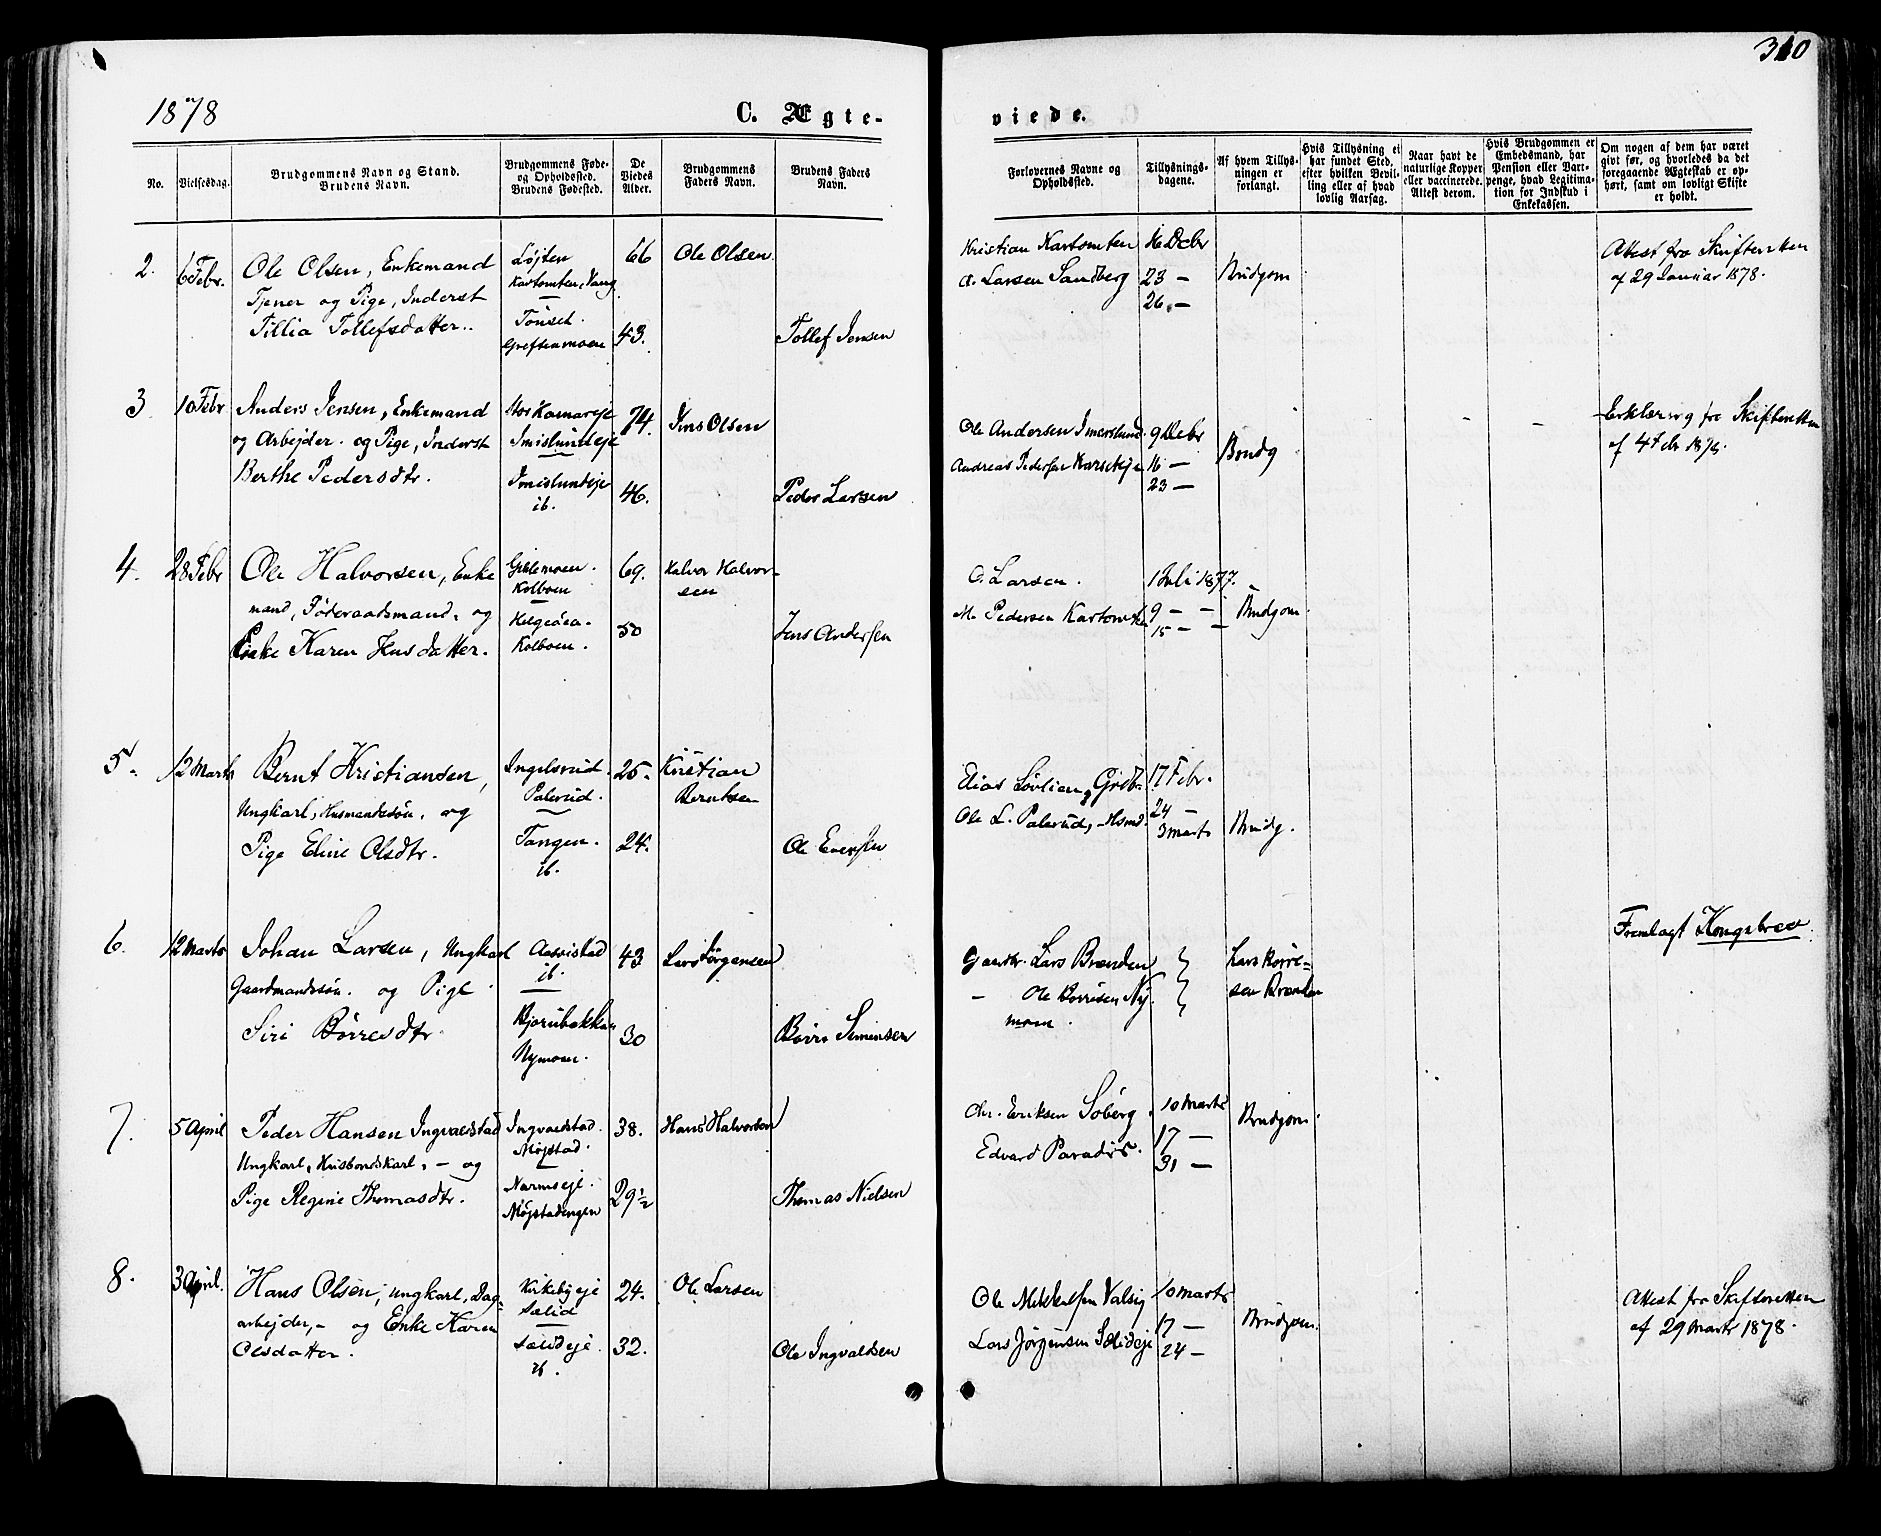 310
1878
C. Ægte-
viede.
No.
Vielsesdag.
Brudgommens Navn og Stand.
Brudens Navn.
Brudgommens Føde-
og Opholdssted.
Brudens Fødested.
De
Viedes
Alder.
Brudgommens
Faders Navn.
Brudens Faders
Navn.
Forlovernes Navne og
Opholdssted.
Tillysnings-
dagene.
Af hvem Tillys-
ningen er
forlangt.
Hvis Tillysning ei
har fundet Sted,
efter hvilken Bevil-
ling eller af hvad
lovlig Aarsag.
Naar havt de
naturlige Kopper
eller vaccinerede.
Attest derom.
Hvis Brudgommen er
Embedsmand, har
Pension eller Vart-
penge, hvad Legitima-
tion for Indskud i
Enkekassen.
Om nogen af dem har været
givt før, og hvorledes da det
foregaaende Ægteskab er op-
hørt, samt om lovligt Skifte
er holdt.
2.
6 Febr.
Ole Olsen, Enkemand
Tjener og Pige, Inderst
Tillia Tollefsdatter.
Løjten
Kartomten, Vang
Tönset.
Greftenmoen
66
43.
Ole Olsen
Tollef Jensen
Kristian Kartomten
A. Larsen Sandberg
16 Debr
23 —
26. —
Brudgom
Attest fra Skifteretten
af 29 Januar 1878.
3
10 Febr
Anders Jensen, Enkemand
og Arbejder. og Pige, Inderst
Berthe Pedersdtr.
Imislundeje
Imislundeje
ib.
74.
46.
Jens Olsen
Peder Larsen
Ole Andersen Imerslund.
Andreas Pedersen
9 Debr
16 —
23 —
Brudg
Erklæring fra Skifteretten
af 4 Febr 1878.
4.
28 Febr
Ole Halvorsen, Enke
mand, Föderaadsmand. og
Enke Karen Jensdatter.
Kolboen
Helgeöen.
Kolboen.
69.
50
Halvor Halvor-
sen
Jens Andersen
O. Larsen.
M. Pedersen Kartomten
1 Juli 1877.
9 — —
15 — —
Brudgom
5.
12 Marts
Bernt Kristiansen,
Ungkarl, Husmandssön. og
Pige Eline Olsdtr.
Ingelsrud.
Palerud.
Tangen.
ib.
25.
24.
Kristian
Berntsen
Ole Evensen
Elias Lövlien, Grdb.
Ole L. Palerud, Hsmd.
17 Febr.
24 —
3 Marts
Brudg.
6.
12 Marts
Johan Larsen, Ungkarl
Gaardmandssön. og Pige
Siri Börresdtr.
Aasvistad
ib.
Bjørnbakken
Nymoen.
43
30
Lars Jörgensen
Börre Simensen
Gaardbr. Lars Brænden
— Ole Børresen Ny
moen.
Lars Börre-
sen Brænden
Fremlagt Kongebrev.
7.
5 April
Peder Hansen Ingvaldstad
Ungkarl, Husbondskarl, — og
Pige Regine Thomasdtr.
Ingvaldstad.
Møjstad.
Narmseje.
Møjstadengen
38.
29½
Hans Halvorsen
Thomas Nielsen
Chr. Eriksen Söberg.
Edvard Paradis.
10 Marts
17 —
31 —
Brudgom.
8.
3 April.
Hans Olsen, ungkarl, Dag-
arbejder, — og Enke Karen
Olsdatter.
Kirkebyeje
Sælid
Sælideje.
ib.
24.
32.
Ole Larsen
Ole Ingvaldsen
Ole Mikkelsen Valsig
Lars Jørgensen Sælideje
10 Marts
17 —
24 —
Brudgom.
Attest fra Skifteretten
af 29 Marts 1878.